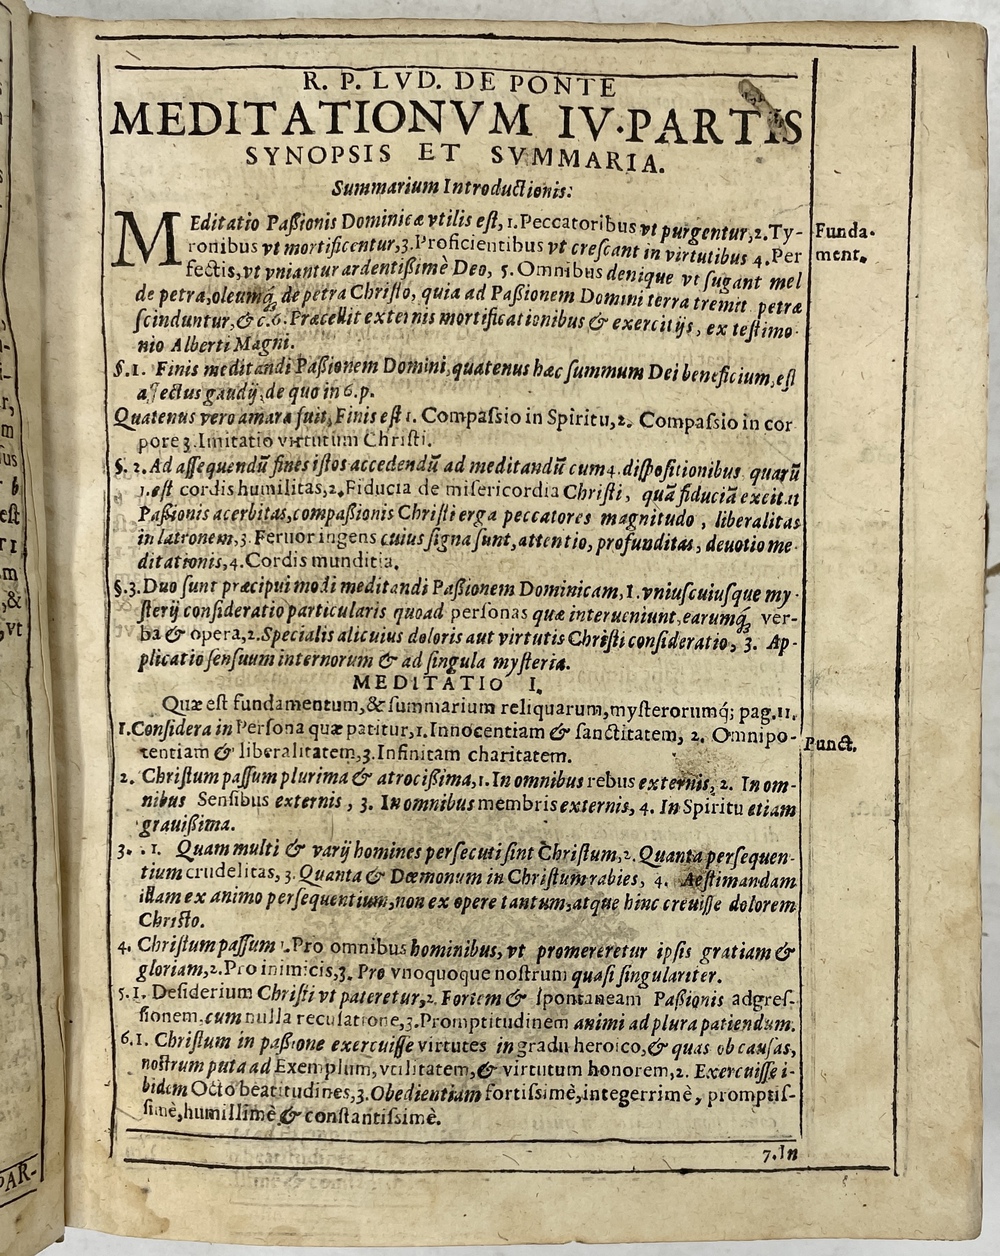 R. P. LVD. DE PONTE
MEDITATIONVM IV. PARTIS
SYNOPSIS ET SVMMARIA.
Summarium Introductionis:
MEditatio Paßionis Dominicæ vtilis est, 1. Peccatoribus vt purgentur, 2. Ty-
Funda-
ronibus vt mortificentur, 3. Proficientibus vt crescant in virtutibus 4. Per
ment.
fectis, vt vniantur ardentißimè Deo, 5. Omnibus denique vt sugant mel
de petra, oleumq́; de petra Christo, quia ad Paßionem Domini terra tremit petræ
scinduntur, & c. 6. Præcellit externis mortificationibus & exercitijs, ex testimo-
nio Alberti Magni.
§. 1. Finis meditandi Paßionem Domini, quatenus hæc summum Dei beneficium, est
affectus gaudij, de quo in 6. p.
Quatenus vero amara fuit, Finis est 1. Compaſsio in Spiritu, 2. Compaſsio in cor
pore 3. Imitatio virtutum Chriſti.
§. 2. Ad aſſequendũ fines iſtos accedendũ ad meditandũ cum 4. diſpoſitionibus quarũ
1. eſt cordis humilitas, 2. Fiducia de miſericordia Chriſti, quã fiduciã excitat
Paßionis acerbitas, compaßionis Chriſti erga peccatores magnitudo, liberalitas
in latronem, 3. Feruor ingens cuius ſigna ſunt, attentio, profunditas, deuotio me-
ditationis, 4. Cordis munditia.
§. 3. Duo ſunt præcipui modi meditandi Paßionem Dominicam, 1. vniuſcuiuſque my-
ſterij conſideratio particularis quoad perſonas quæ interueniunt, earumq́; ver-
ba & opera, 2. Specialis alicuius doloris aut virtutis Chriſti conſideratio, 3. Ap-
plicatio ſenſuum internorum & ad ſingula myſteria.
MEDITATIO I.
Quæ eſt fundamentum, & ſummarium reliquarum, myſterorumq́; pag. 11.
1. Conſidera in Perſona quæ patitur, 1. Innocentiam & ſanctitatem, 2. Omnipo-
Punct.
tentiam & liberalitatem, 3. Infinitam charitatem.
2. Chriſtum paſſum plurima & atrocißima, 1. In omnibus rebus externis, 2. In om-
nibus Senſibus externis, 3. In omnibus membris externis, 4. In Spiritu etiam
grauißima.
3. . 1. Quam multi & varij homines perſecuti ſint Chriſtum, 2. Quanta perſequen-
tium crudelitas, 3. Quanta & Dæmonum in Chriſtum rabies, 4. Aeſtimandam
illam ex animo perſequentium, non ex opere tantum, atque hinc creuiſſe dolorem
Chriſto.
4. Chriſtum paſſum 1. Pro omnibus hominibus, vt promereretur ipſis gratiam &
gloriam, 2. Pro inimicis, 3. Pro vnoquoque noſtrum quaſi ſingulariter.
5. 1. Deſiderium Chriſti vt pateretur, 2. Fortem & ſpontaneam Paßionis adgreſ-
ſionem. cum nulla recuſatione, 3. Promptitudinem animi ad plura patiendum.
6. 1. Chriſtum in paßione exercuiſſe virtutes in gradu heroico, & quas ob cauſas,
noſtrum puta ad Exemplum, vtilitatem, & virtutum honorem, 2. Exercuiſſe i-
bidem Octo beatitudines, 3. Obedientiam fortiſsimè, integerrimè, promptiſ-
ſimè, humillimè & conſtantiſsimè.
7. In